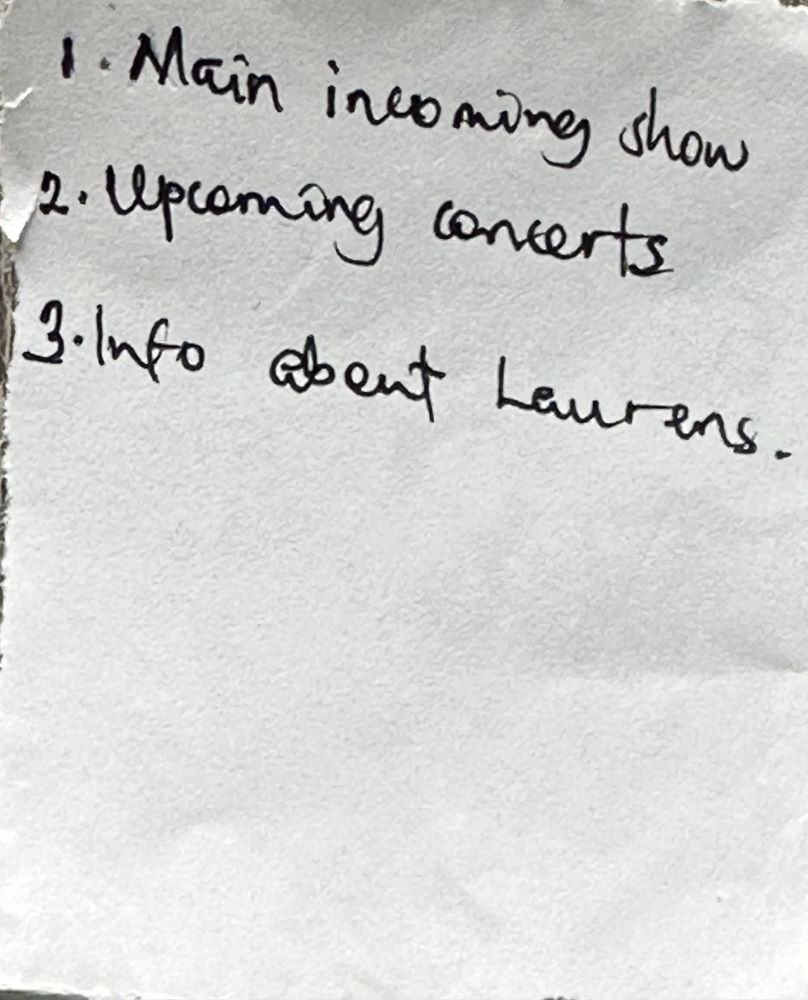 1. Main incoming show
2. Upcoming concerts
3. Info about Laurens.